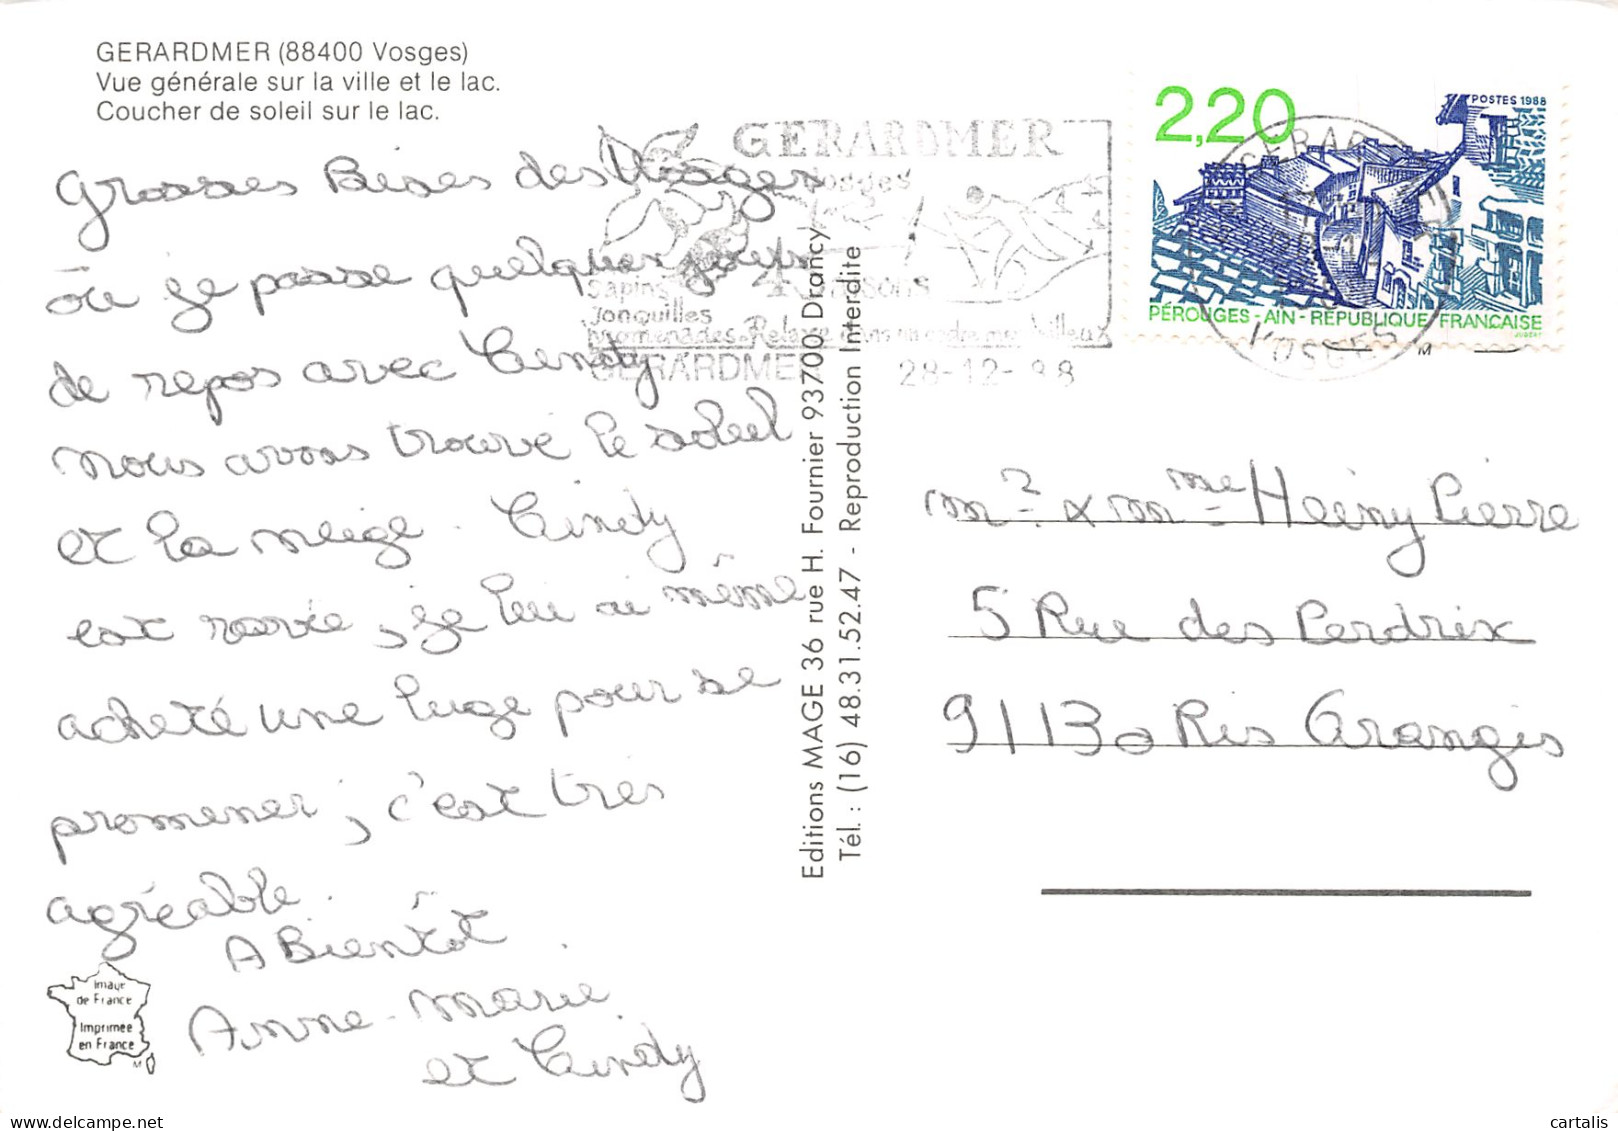 GERARDMER (88400 Vosges)
Vue générale sur la ville et le lac.
Coucher de soleil sur le lac.
Grosses Bises des Vosges
où je passe quelques jours
de repos avec Cindy
nous avons trouvé le soleil
et la neige. Cindy
est ravie, je lui ai même
acheté une luge pour se
promener, c'est très
agréable.
A Bientôt
Anne-Marie
et Cindy
Image
de France
Imprimée
en France
M
Editions MAGE 36 rue H. Fournier 93700 Drancy
Tél. : (16) 48.31.52.47 - Reproduction Interdite
GERARDMER
Vosges
sapins
jonquilles
promenades. Relaxe dans un cadre merveilleux
GERARDMER 28-12-88
2,20
POSTES 1988
PÉROUGES-AIN-RÉPUBLIQUE FRANÇAISE
JUBERT
GERARDMER
VOSGES
M
Mr & Mme Heiny Pierre
5 Rue des Perdrix
91130 Ris Orangis
cartalis
www.delcampe.net